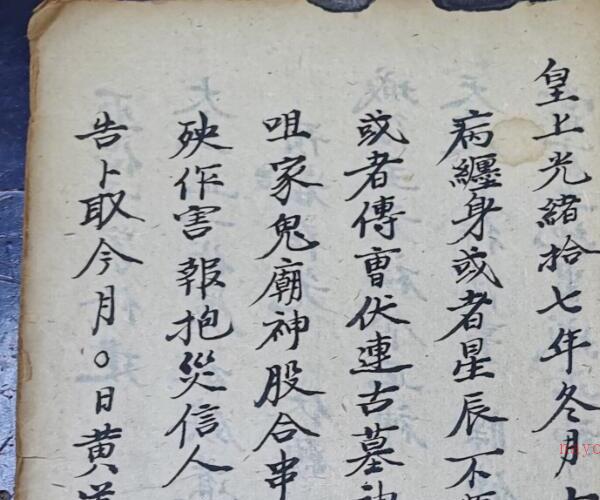 皇上光緒拾七年冬月
病纏身或者星辰不
或者傳曺伏連古墓神
咀家鬼廟神股合串
殃作害報抱災信人
告卜取今月〇日黄道